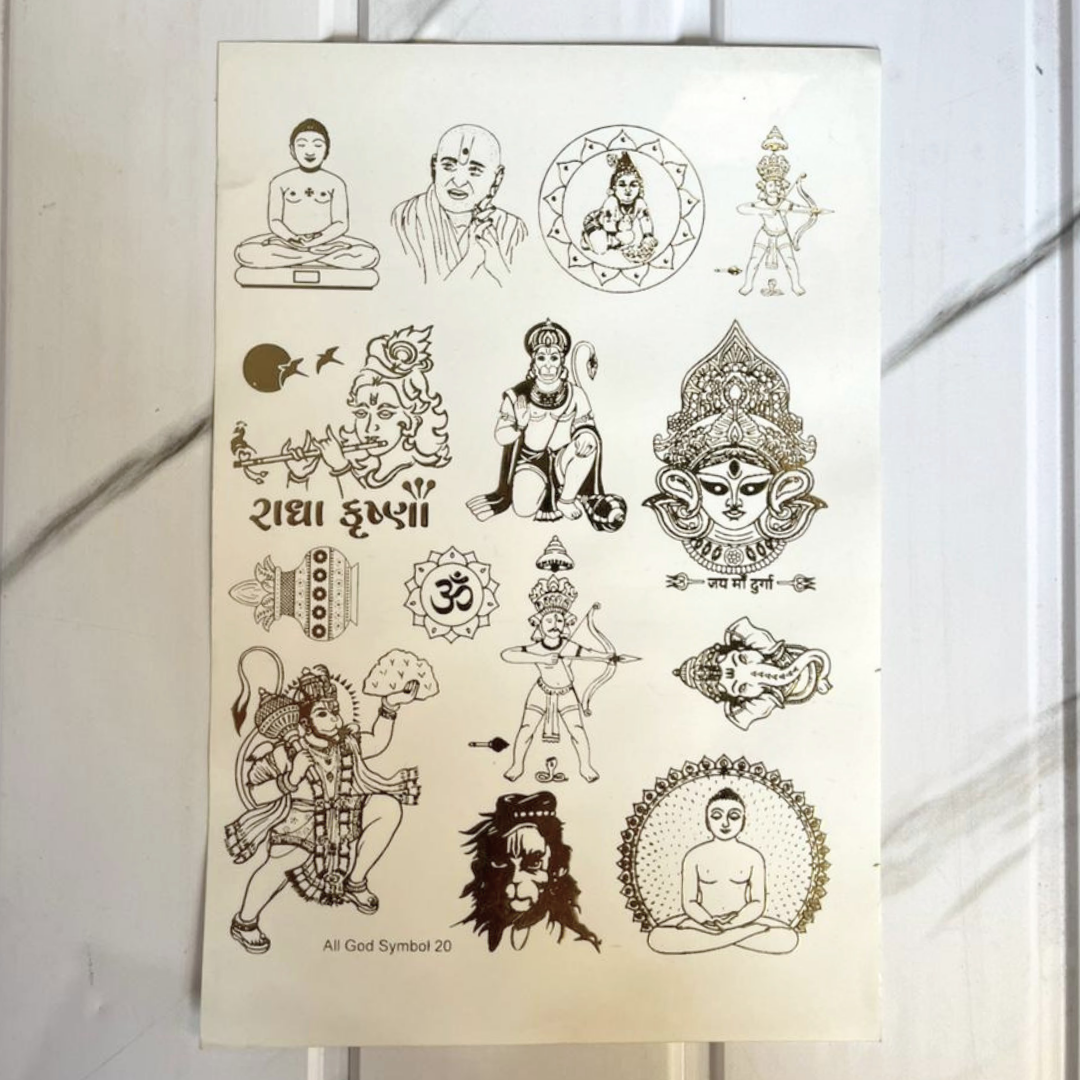 રાધા કૃષ્ણા
जय माँ दुर्गा
ॐ
All God Symbol 20